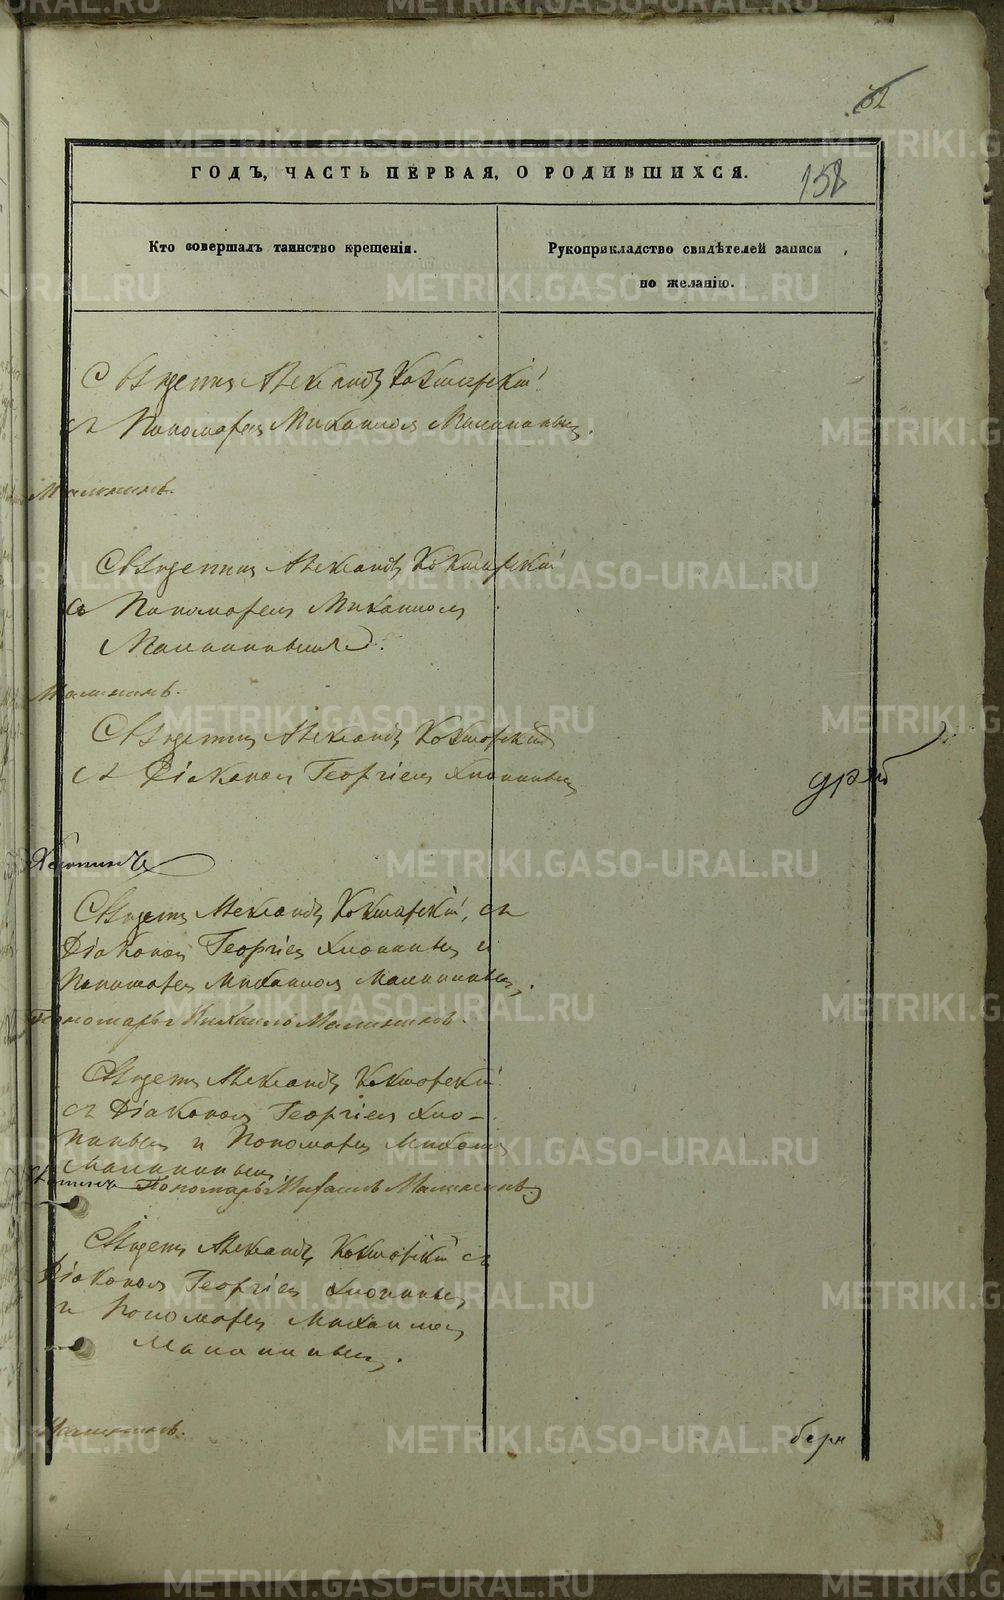 62
ГОДЪ, ЧАСТЬ ПЕРВАЯ, О РОДИВШИХСЯ.
158
Кто совершалъ таинство крещенія.
Рукоприкладство свидѣтелей записи
по желанію.
Священникъ Александръ Кокшарскій
съ Пономаремъ Михаиломъ Малининымъ.
Малининъ.
Священникъ Александръ Кокшарскій
съ Пономаремъ Михаиломъ
Малининымъ.
Малининъ.
Священникъ Александръ Кокшарскій
съ Діакономъ Георгіемъ Хлопинымъ
Хлопинъ
Священ. Александръ Кокшарскій, съ
Діакономъ Георгіемъ Хлопинымъ и
Пономаремъ Михаиломъ Малининымъ.
Пономарь Михаилъ Малининъ.
Священ. Александръ Кокшарскій
съ Діакономъ Георгіемъ Хло-
пинымъ и Пономаремъ Михаил.
Малининымъ
Пономарь Михаилъ Малининъ
Священ. Александръ Кокшарскій съ
Діакономъ Георгіемъ Хлопинымъ
и Пономаремъ Михаиломъ
Малининымъ.
Малининъ.
METRIKI.GASO-URAL.RU